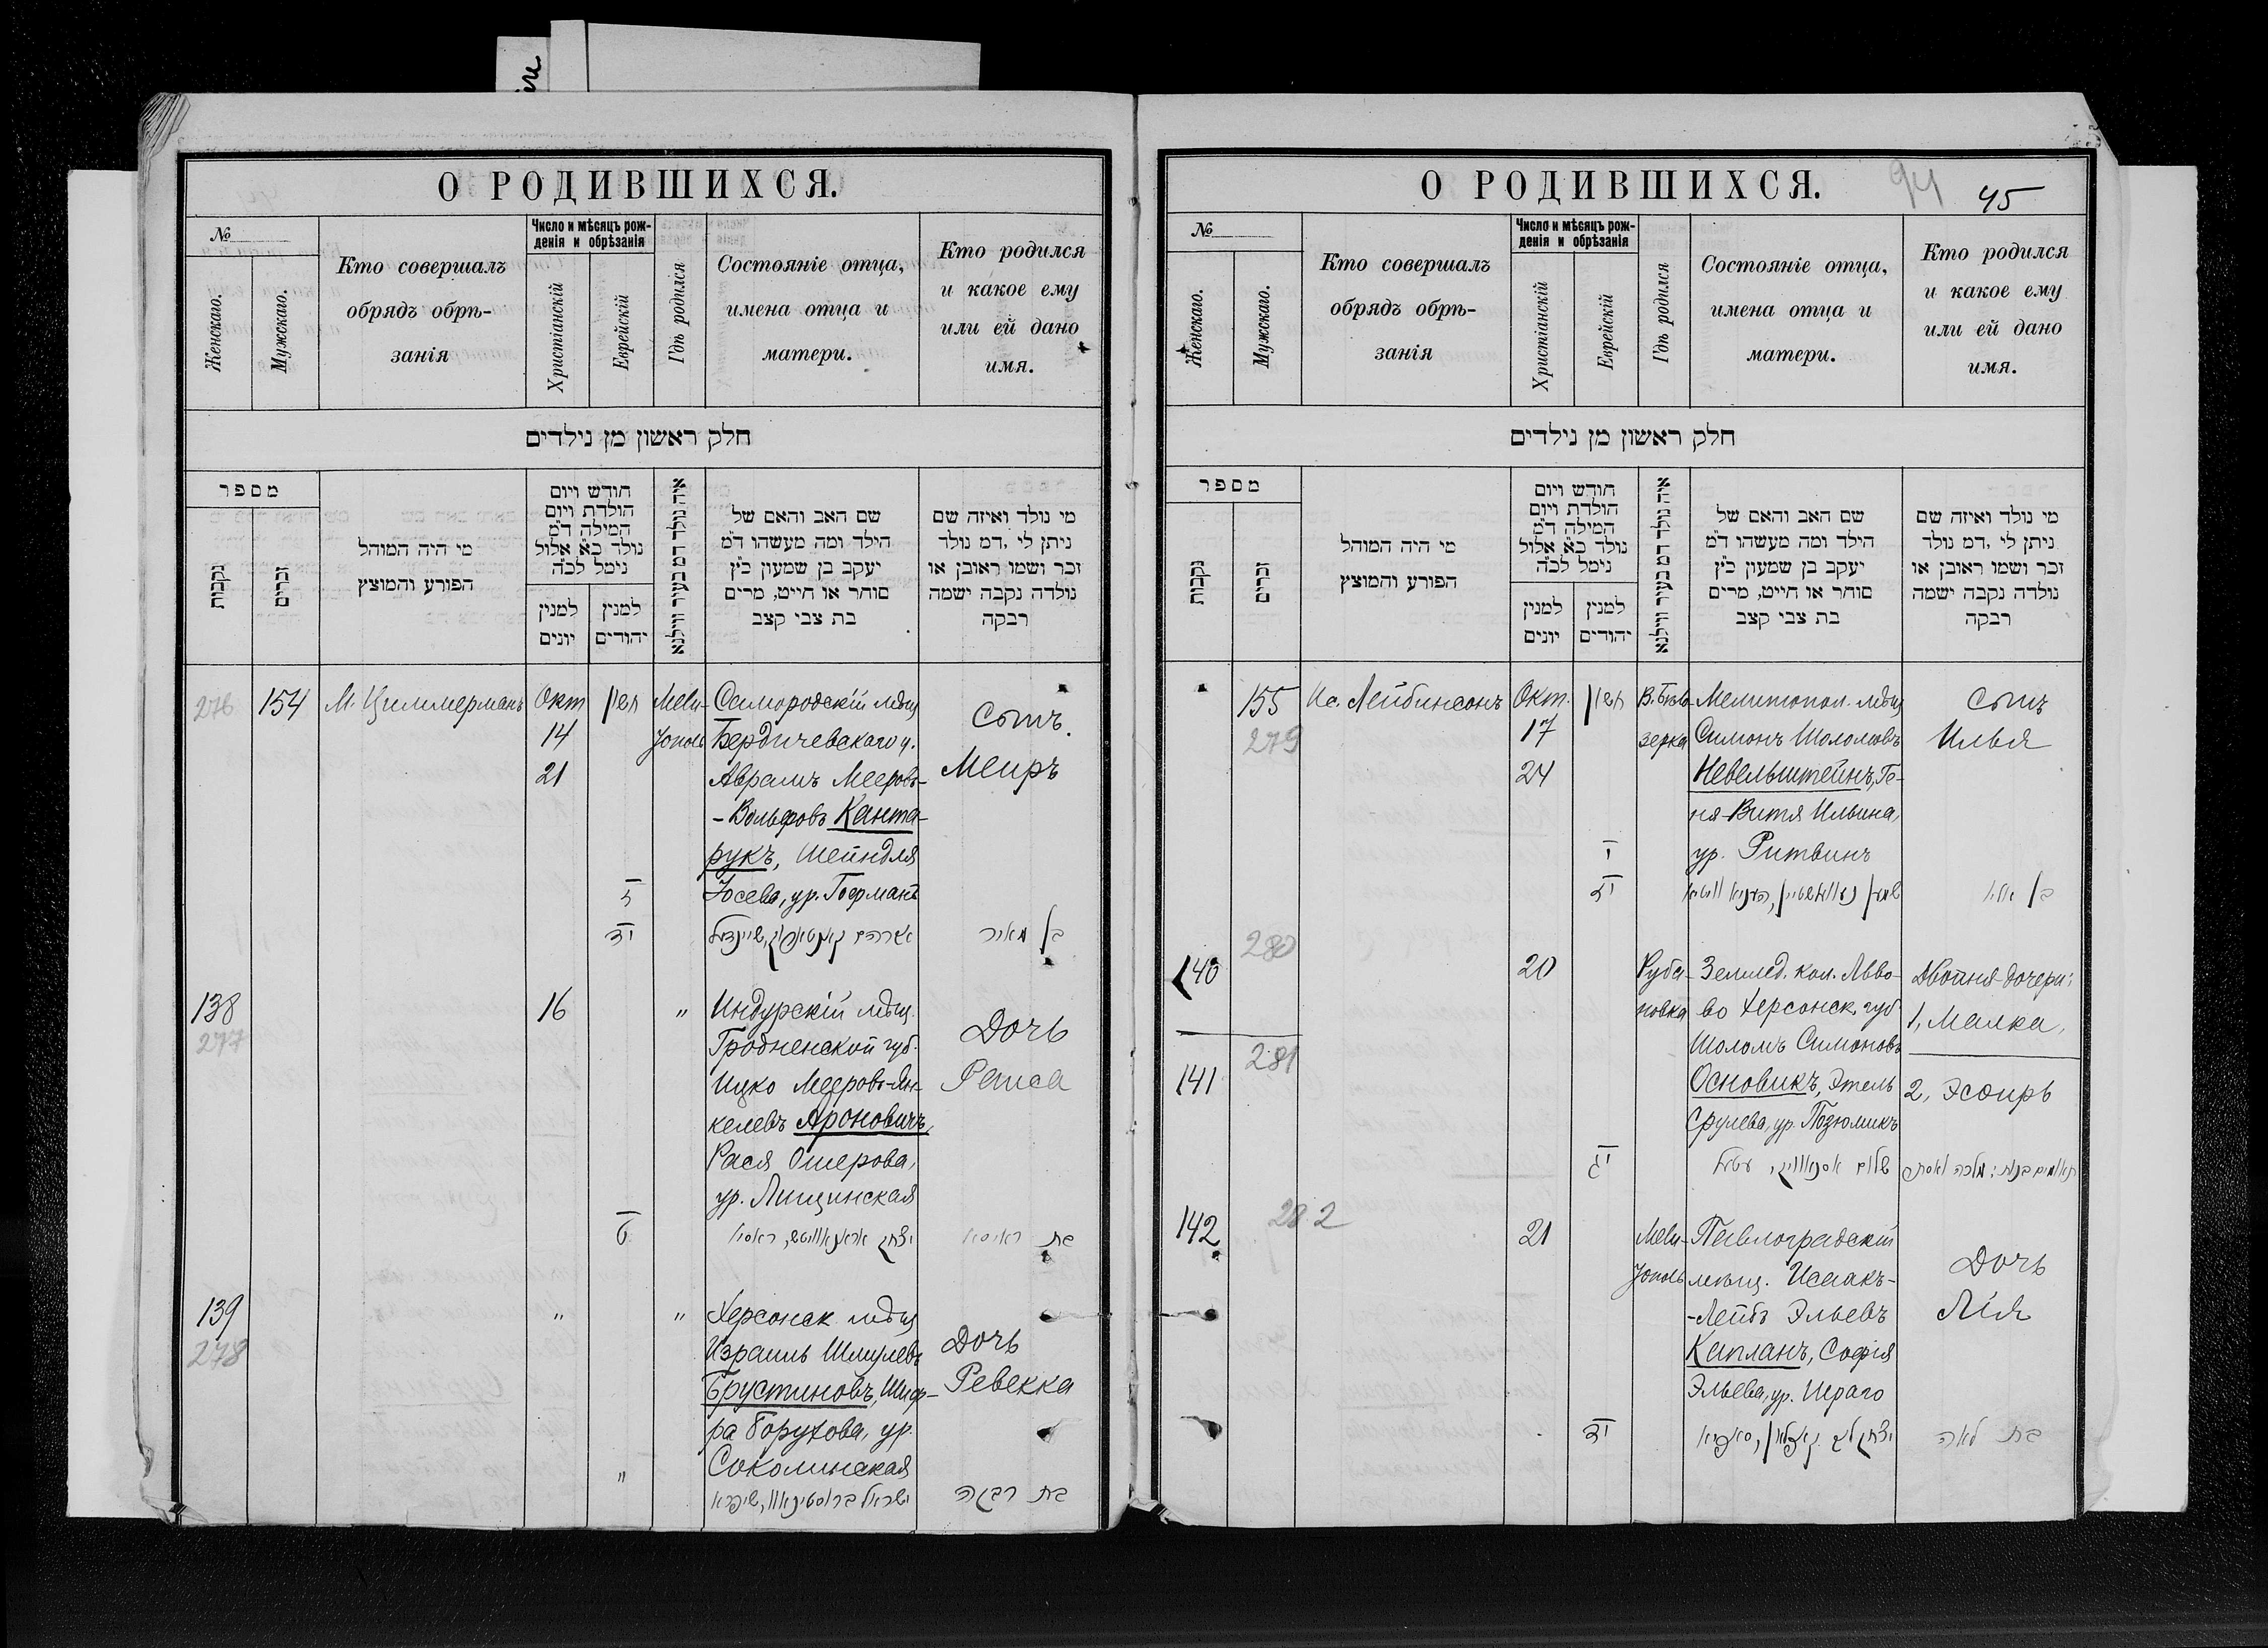 О РОДИВШИХСЯ.
№
Женскаго.
Мужскаго.
Кто совершалъ
обрядъ обрѣ-
занія
Число и мѣсяцъ рож-
денія и обрѣзанія
Христіанскій
Еврейскій
Гдѣ родился
Состояніе отца,
имена отца и
матери.
Кто родился
и какое ему
или ей дано
имя.
חלק ראשון מן נילדים
מספר
נקבות
זכרים
מי היה המוהל
הפורע והמוצץ
חודש ויום
הולדת ויום
המילה ד״מ
נולד כ״א אלול
נימל לכ״ה
למנין
יונים
למנין
יהודים
איה נולד דמ בעיר ווילנא
שם האב והאם של
הילד ומה מעשהו ד״מ
יעקב בן שמעון כ״ץ
סוחר או חייט, מרים
בת צבי קצב
מי נולד ואיזה שם
ניתן לי, דמ נולד
זכר ושמו ראובן או
נולדה נקבה ישמה
רבקה
276
154
М. Циммерманъ
Окт
14
21
חשון
ז
יד
Мели-
тополь
Самородскій мѣщ
Бердичевскаго у.
Аврамъ Мееровъ-
-Вольфовъ Канта-
рукъ, Шейндля
Іосева, ур. Гофманъ
אברהם קאנטארוק, שיינדל
Сынъ.
Меиръ
בן מאיר
138
277
16
ט
"
Индурскій мѣщ.
Гродненской губ.
Ицко Мееровъ-Ян-
келевъ Ароновичъ,
Рася Ошерова,
ур. Лищинская
יצחק אראנאוויטש, ראסיא
Дочь
Раиса
בת ראיסא
139
278
"
"
"
Херсонск мѣщ
Израиль Шмулевъ
Брустиновъ, Шиф-
ра Борухова, ур.
Соколинская
ישראל ברוסטינאוו, שיפרא
Дочь
Ревекка
בת רבקה
О РОДИВШИХСЯ.
94
45
№
Женскаго.
Мужскаго.
Кто совершалъ
обрядъ обрѣ-
занія
Число и мѣсяцъ рож-
денія и обрѣзанія
Христіанскій
Еврейскій
Гдѣ родился
Состояніе отца,
имена отца и
матери.
Кто родился
и какое ему
или ей дано
имя.
חלק ראשון מן נילדים
מספר
נקבות
זכרים
מי היה המוהל
הפורע והמוצץ
חודש ויום
הולדת ויום
המילה ד״מ
נולד כ״א אלול
נימל לכ״ה
למנין
יונים
למנין
יהודים
איה נולד דמ בעיר ווילנא
שם האב והאם של
הילד ומה מעשהו ד״מ
יעקב בן שמעון כ״ץ
סוחר או חייט, מרים
בת צבי קצב
מי נולד ואיזה שם
ניתן לי, דמ נולד
זכר ושמו ראובן או
נולדה נקבה ישמה
רבקה
155
279
Ис. Лейбинсонъ
Окт.
17
24
חשון
י
יז
В. Бѣло-
зерка
Мелитопол. мѣщ
Симонъ Шоломовъ
Невельштейнъ, Ге-
ня-Витя Ильина,
ур. Ритвинъ
שמעון נעוועלשטיין, העניא וויטיא
Сынъ
Илья
בן אליו
140
280
20
Руба-
новка
Землед. кол. Льво-
во Херсонск. губ.
Шоломъ Симоновъ
Основикъ, Этель
Срулева, ур. Позюмикъ
שלום אסנאוויק, עטיל
Двойня-дочери:
1, Малка,
141
281
2, Эсѳирь
יג
תאומים בנות: מלכה ואסתר
142
282
21
יד
Мели-
тополь
Павлоградскій
мѣщ. Исаакъ-
-Лейбъ Эльевъ
Капланъ, Софія
Эльева, ур. Шраго
יצחק ליב קאפלאן, סאפיא
Дочь
Лія
בת לאה